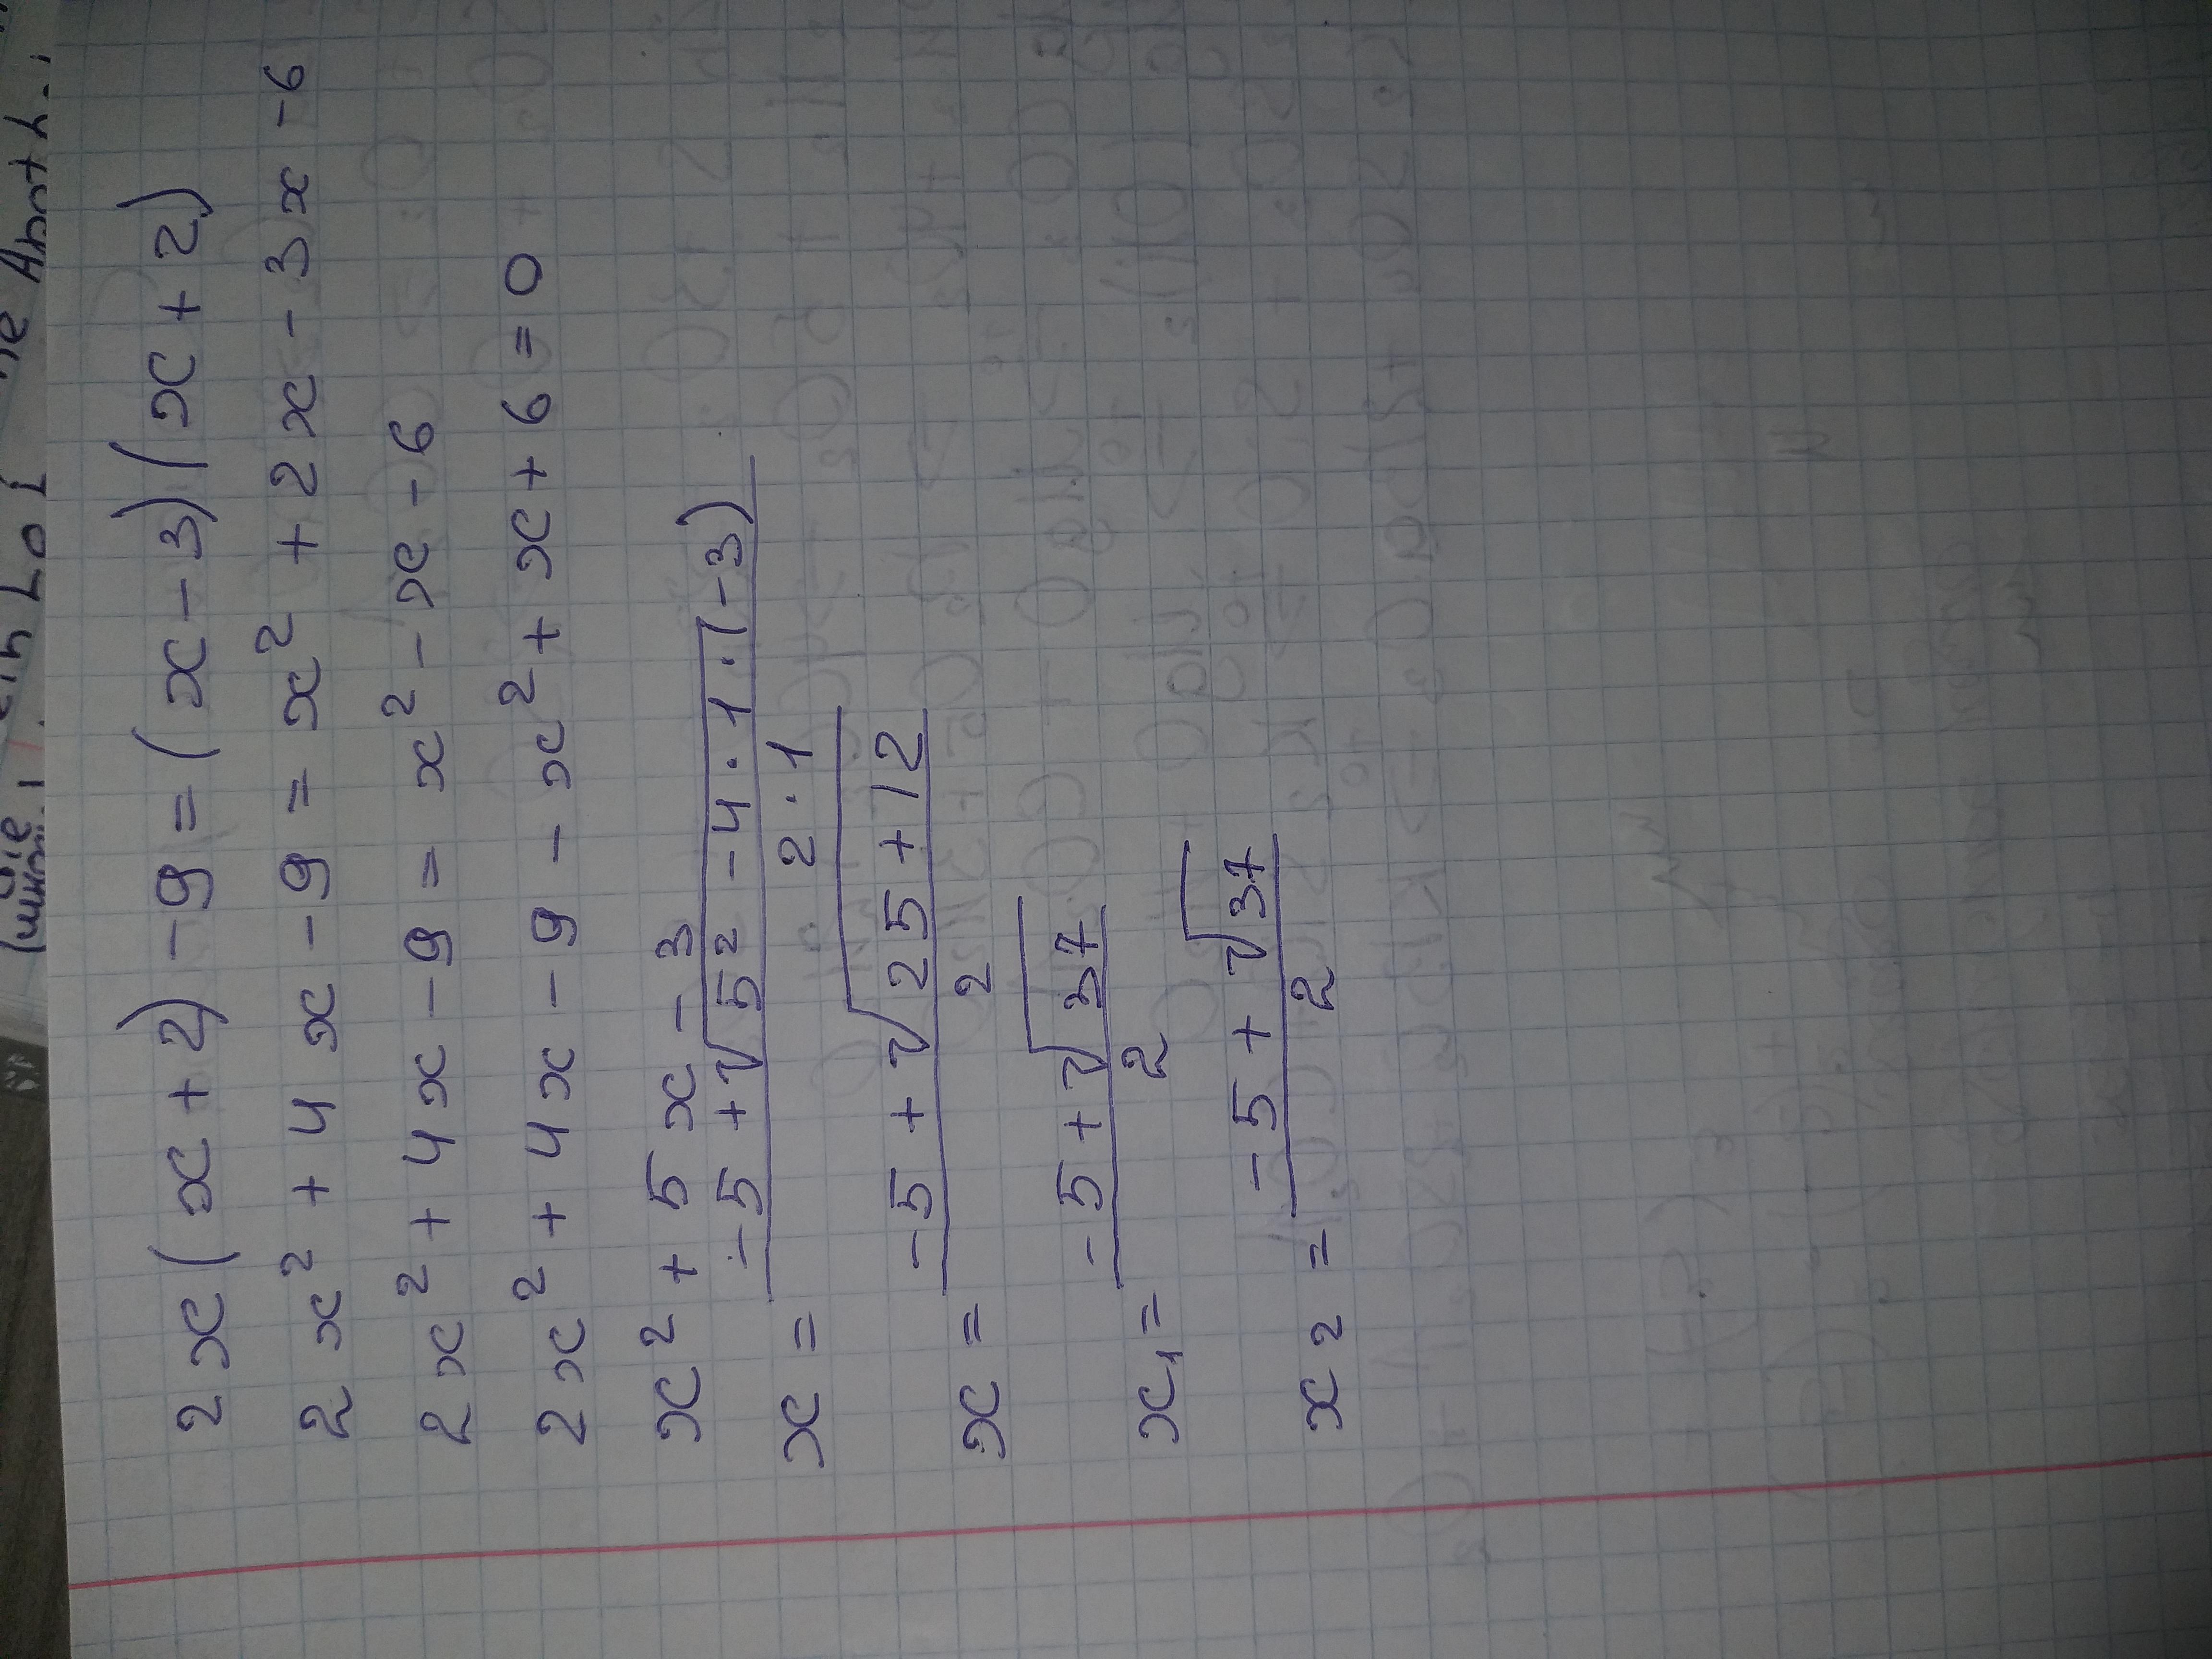 2x(x+2)-9=(x-3)(x+2)
2x²+4x-9=x²+2x-3x-6
2x²+4x-9=x²-x-6
2x²+4x-9-x²+x+6=0
x²+5x-3
x=(-5+√(5²-4·1·(-3)))/(2·1)
x=(-5+√(25+12))/2
x₁=(-5+√37)/2
x₂=(-5+√37)/2